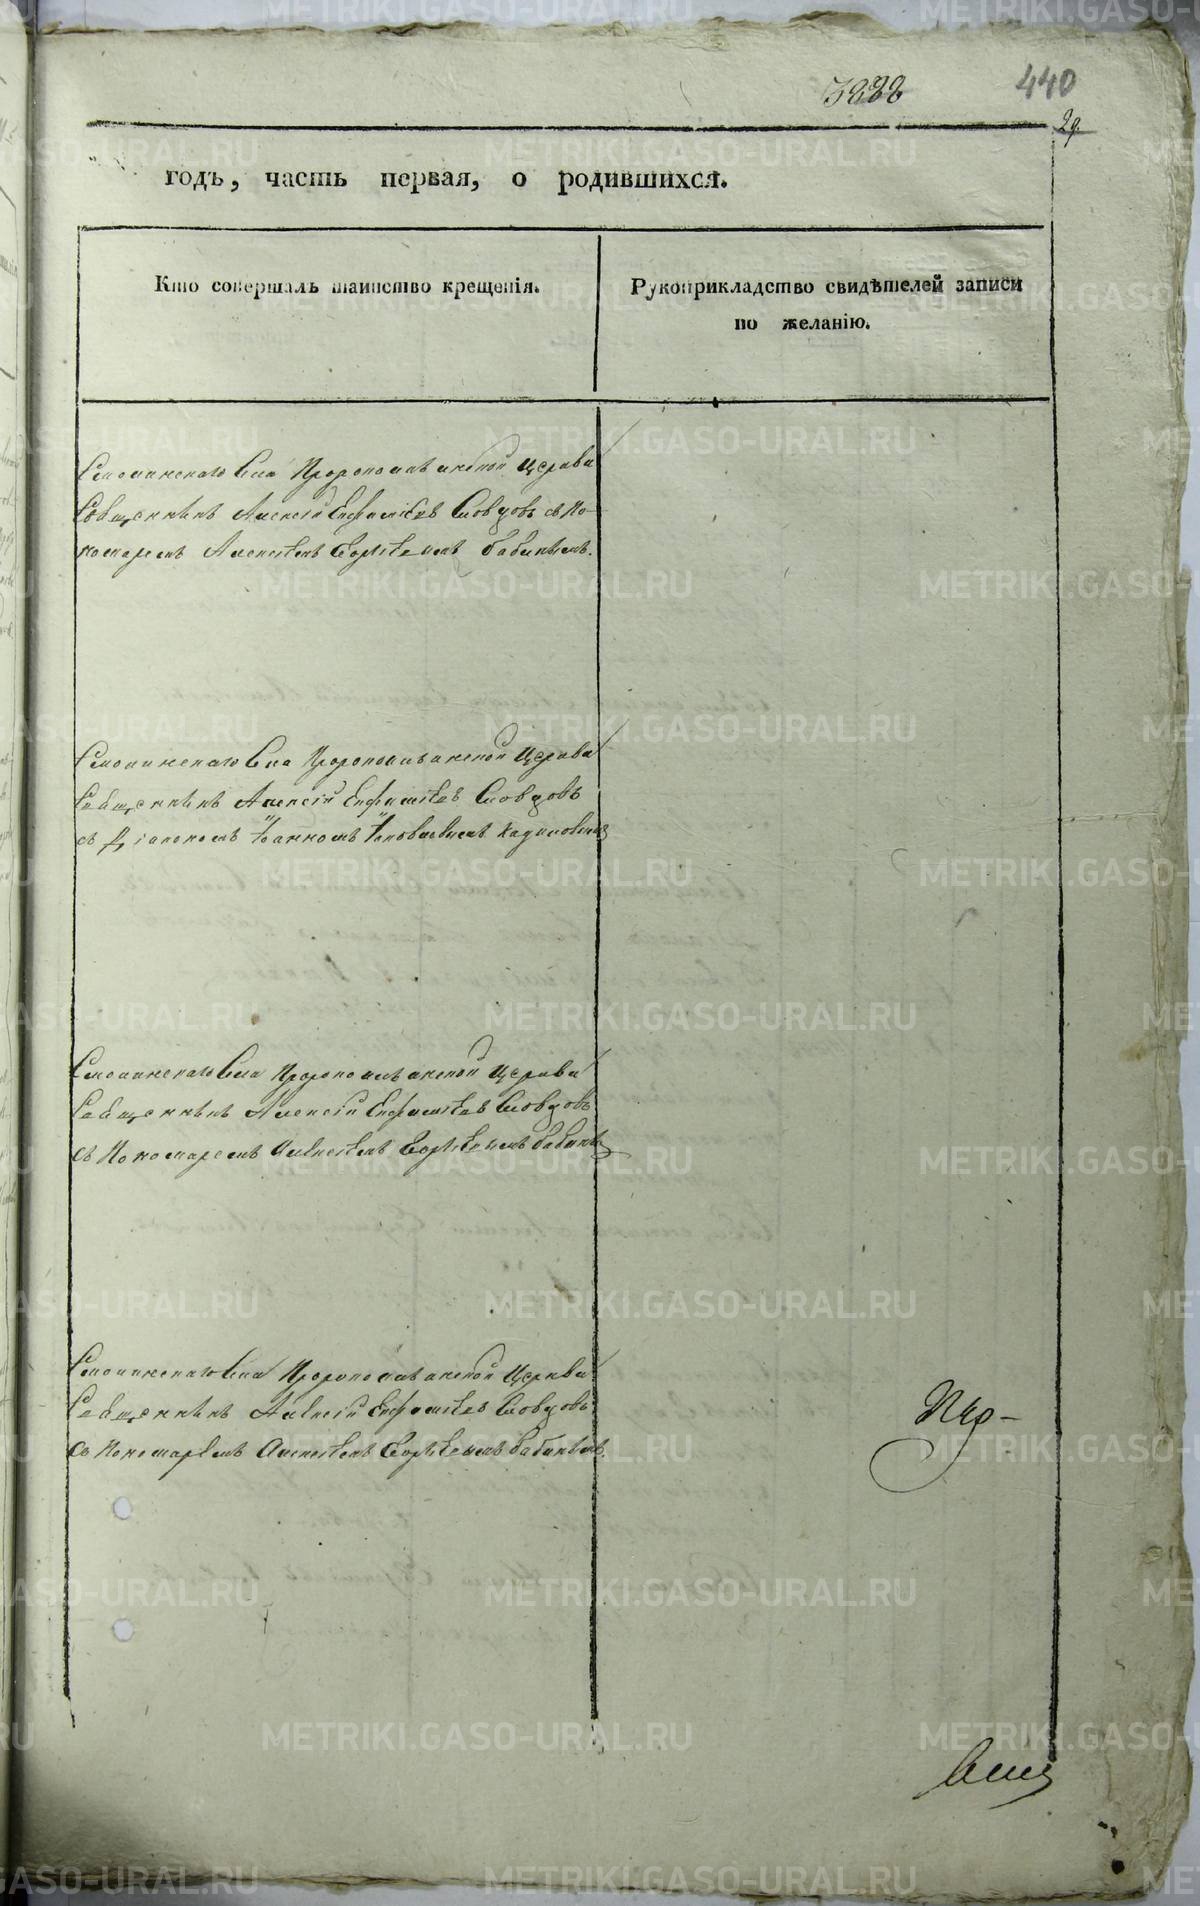 440
29.
годъ, часть первая, о родившихся.
Кто совершалъ таинство крещенія.
Рукоприкладство свидѣтелей записи
по желанію.
Смолинскаго Села Пророкоильинской Церкви
Священникъ Алексій Евфиміевъ Словцовъ съ По-
номаремъ Алексѣемъ Георгіевымъ Бабинымъ.
Смолинскаго Села Пророкоильинской Церкви
Священникъ Алексій Евфиміевъ Словцовъ
съ Діакономъ Іоанномъ
Смолинскаго Села Пророкоильинской Церкви
Священникъ Алексій Евфиміевъ Словцовъ
съ Пономаремъ Алексѣемъ Георгіевымъ Бабинымъ
Смолинскаго Села Пророкоильинской Церкви
Священникъ Алексій Евфиміевъ Словцовъ
съ Пономаремъ Алексѣемъ Георгіевымъ Бабинымъ.
METRIKI.GASO-URAL.RU